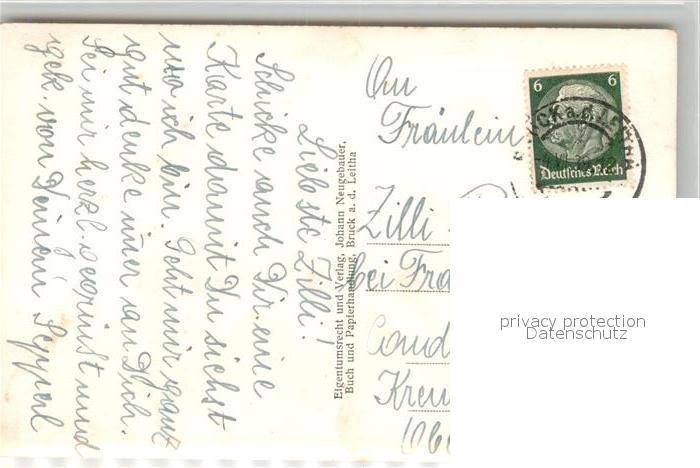 Liebste Zilli!
Schicke auch Dir eine
Karte damit Du siehst
wo ich bin. Geht mir ganz
gut denke imer an Dich.
Sei mir herzl. gegrüßt und
gek. von Deinem Pepperl
Eigentumsrecht und Verlag, Johann Neugebauer,
Buch und Papierhandlung, Bruck a. d. Leitha
An
Fräulein
Zilli
bei Fra
Cond
Kreu
6 6
Deutsches Reich
BRUCK a. d. LEITHA
privacy protection
Datenschutz